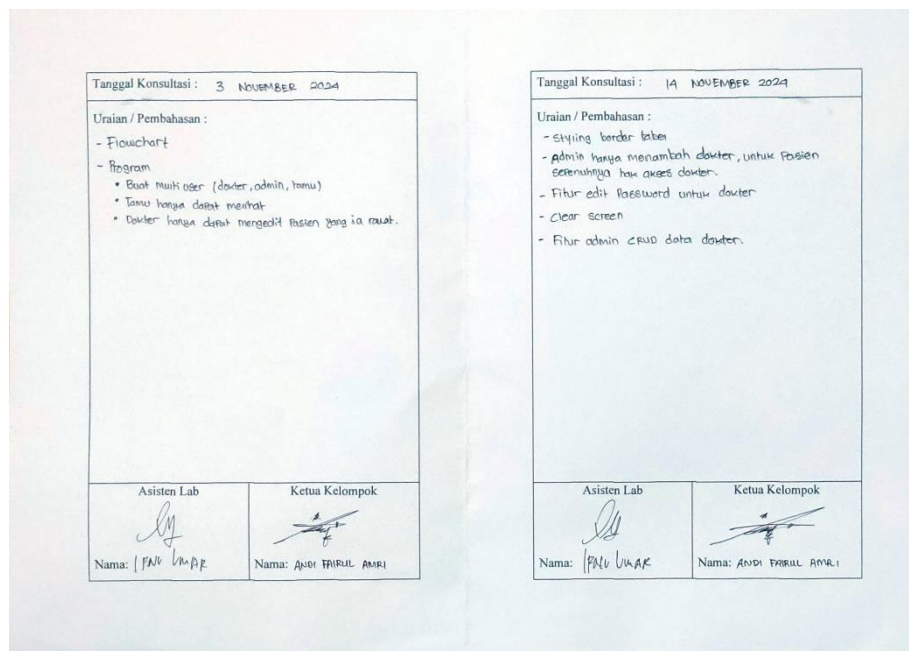 Tanggal Konsultasi : 3 NOVEMBER 2024
Uraian / Pembahasan :
- Flowchart
- Program
• Buat multi user (dokter, admin, tamu)
• Tamu hanya dapat melihat
• Dokter hanya dapat mengedit Pasien yang ia rawat.
Asisten Lab
Ketua Kelompok
Nama: UMAR
Nama: ANDI FAIRUL AMRI
Tanggal Konsultasi : 14 NOVEMBER 2024
Uraian / Pembahasan :
- Styling border tabel
- Admin hanya menambah dokter, untuk Pasien
sepenuhnya hak akses dokter.
- Fitur edit Password untuk dokter
- Clear screen
- Fitur admin CRUD data dokter.
Asisten Lab
Ketua Kelompok
Nama: UMAR
Nama: ANDI FAIRUL AMRI